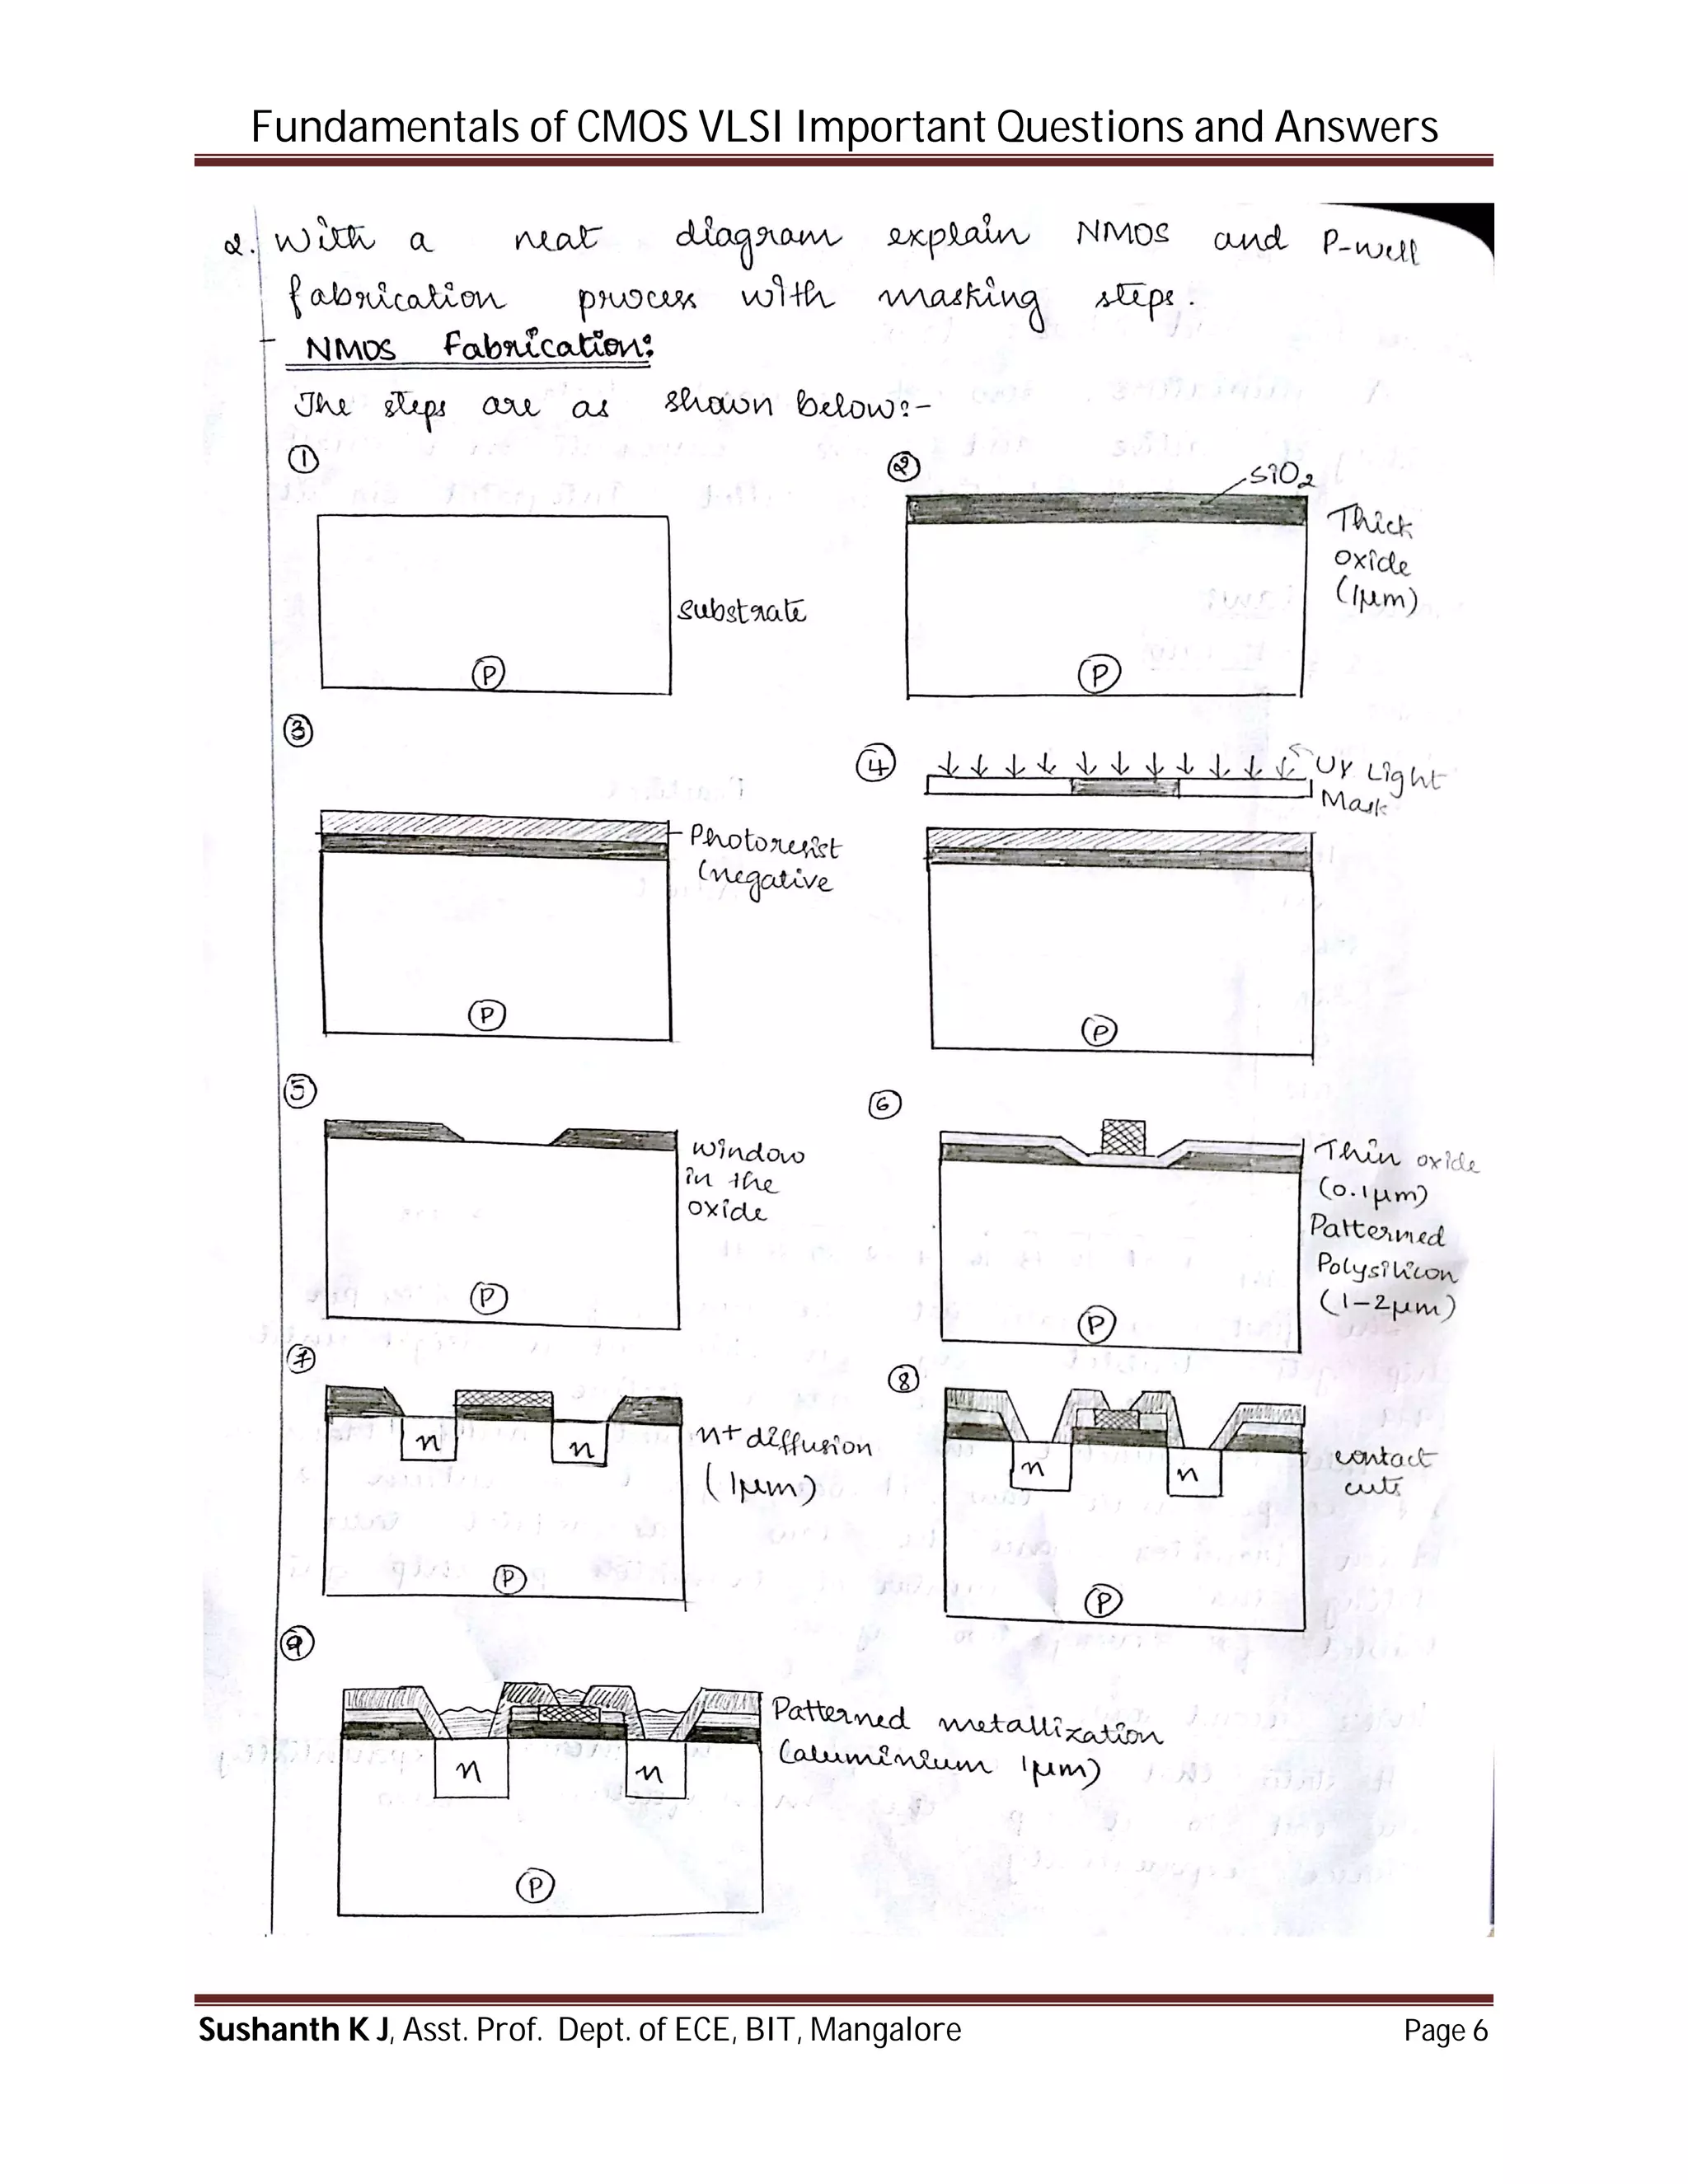 Fundamentals of CMOS VLSI Important Questions and Answers
2. With a neat diagram explain NMOS and P-well
fabrication process with masking steps.
NMOS Fabrication:
The steps are as shown below:-
1
P
substrate
2
SiO2
Thick
oxide
(1μm)
P
3
Photoresist
(negative
P
4
UV Light
Mask
P
5
window
in the
oxide
P
6
Thin oxide
(0.1μm)
Patterned
Polysilicon
(1-2μm)
P
7
n n
n+ diffusion
(1μm)
P
8
n n
contact
cuts
P
9
Patterned metallization
(aluminium 1μm)
n n
P
Sushanth K J, Asst. Prof. Dept. of ECE, BIT, Mangalore Page 6